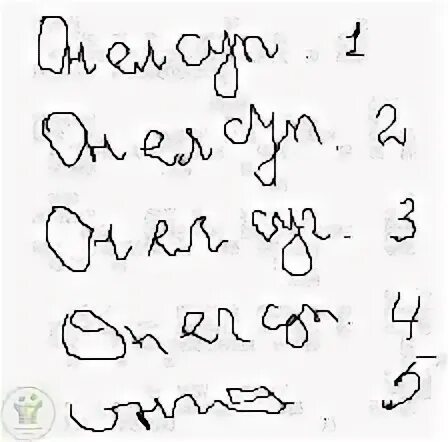 Он ел суп. 1
Он ел суп. 2
Он ел суп. 3
Он ел суп 4
5